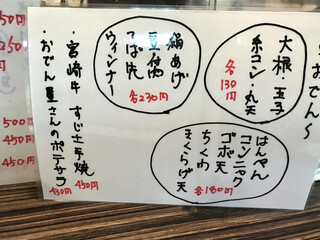 おでん〜
大根・玉子
糸コン・丸天
各130円
絹あげ
豆腐
つぶ貝
ウィンナー
各230円
はんぺん
コンニャク
ゴボ天
ちくわ
きくらげ天
各180円
・宮崎牛すじ土手焼
450円
・おでん屋さんのポテサラ
430円
250円
500円
450円
450円